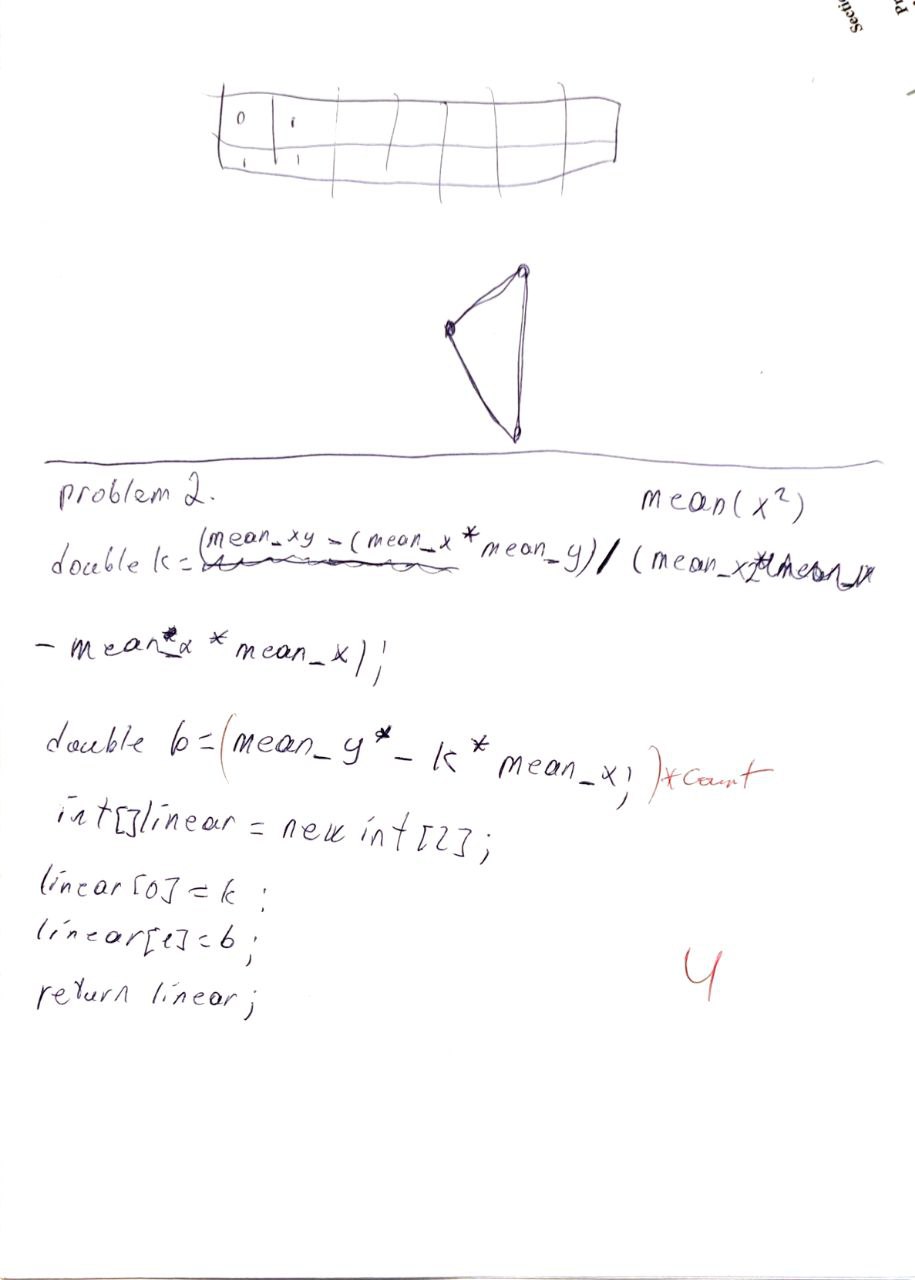 Secti
Pr
0 1
1 1
problem 2.
mean(x²)
double k = (mean_xy - (mean_x * mean_y) / (mean_x2
- mean_x * mean_x);
double b = (mean_y - k * mean_x; ) * count
int[]linear = new int[2];
linear[0] = k ;
linear[1] = b ;
return linear;
4